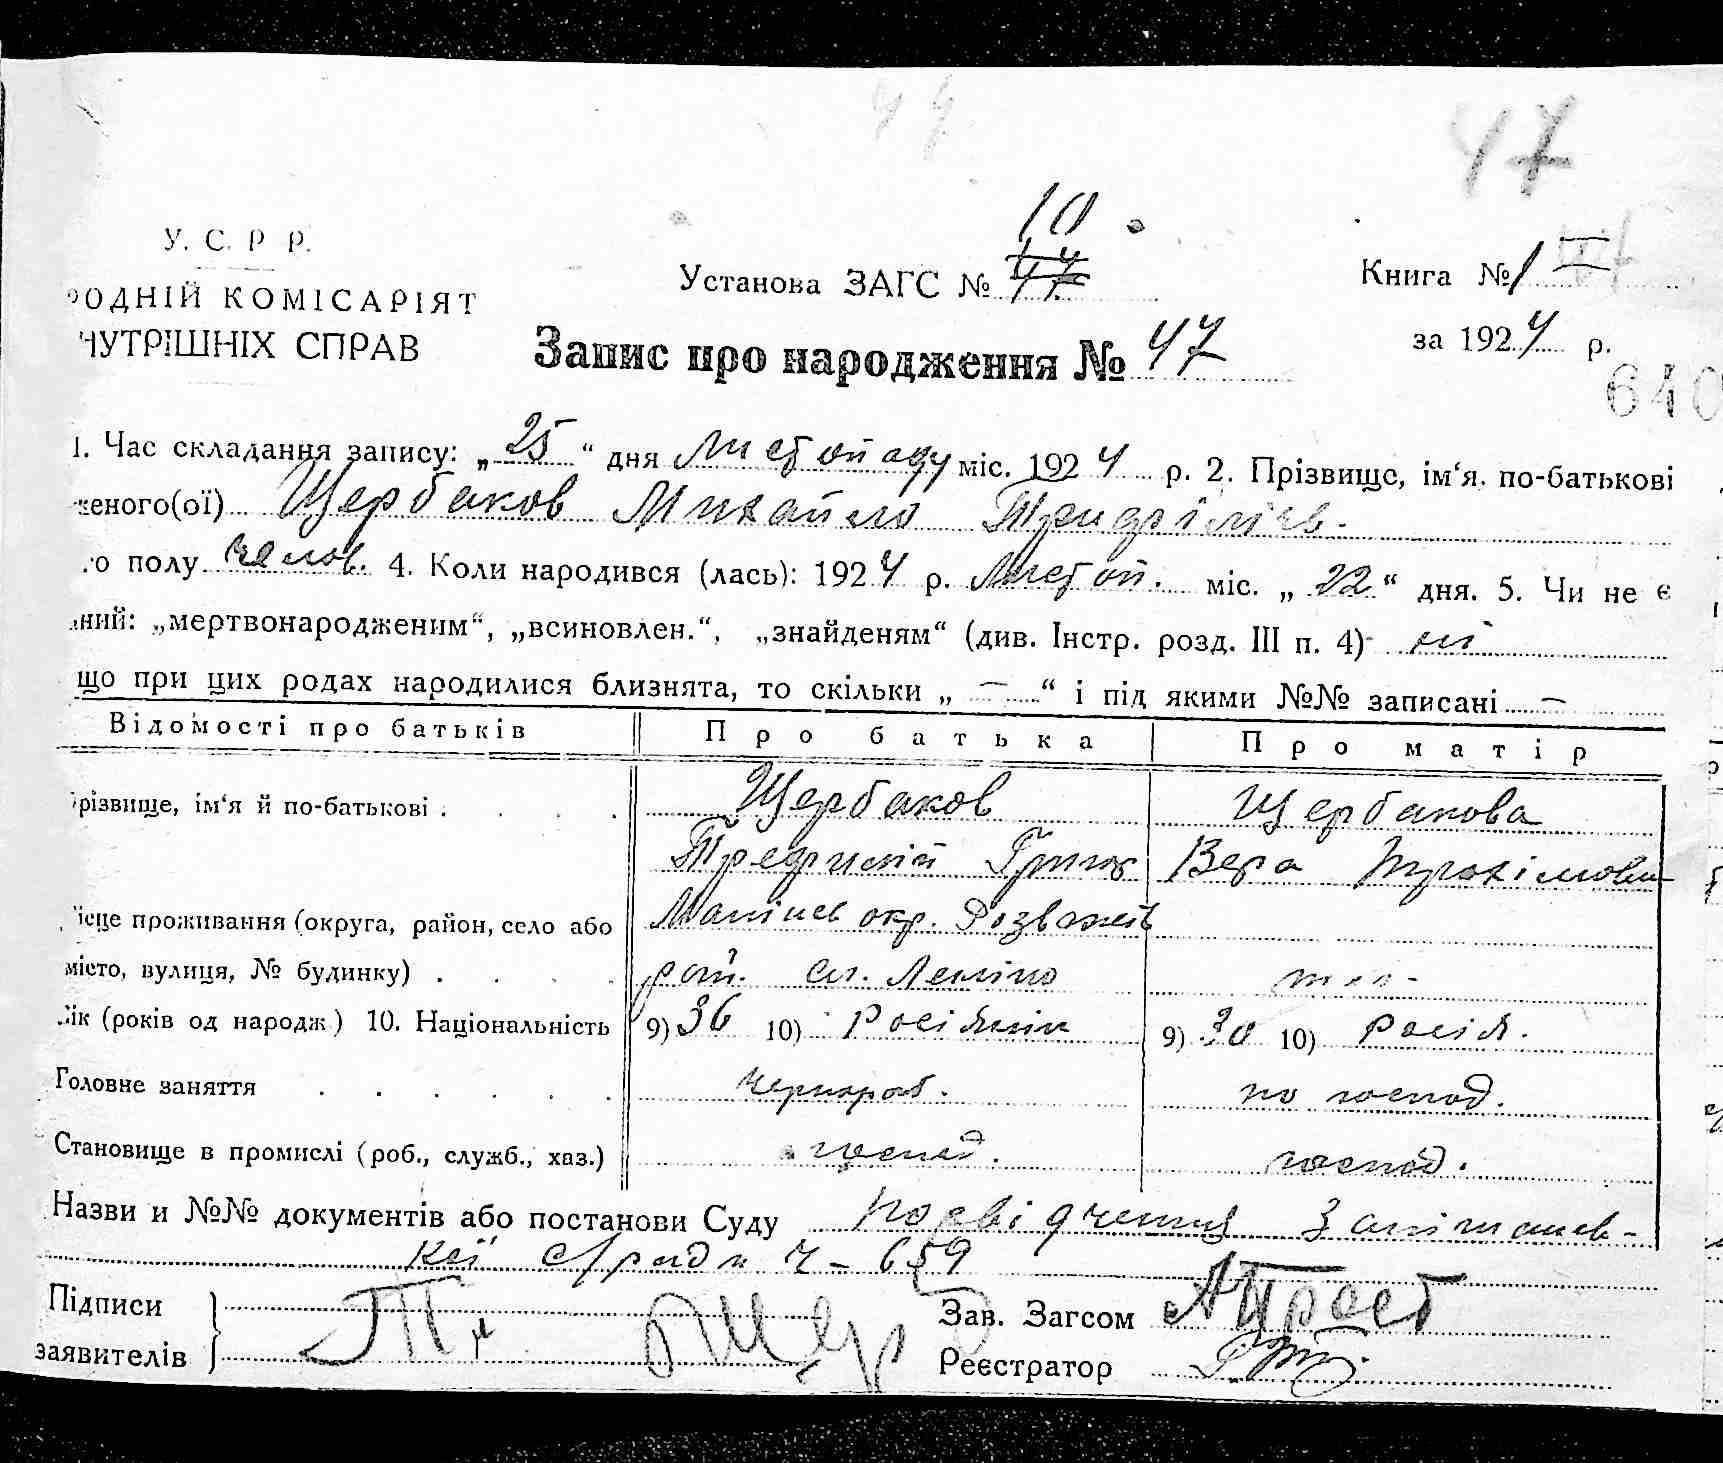 47
У. С. Р Р.
10
РОДНІЙ КОМІСАРІЯТ
НУТРІШНІХ СПРАВ
Установа ЗАГС № 44
Книга № 1
Запис про народження № 47
за 1924 р.
640
1. Час складання запису: „25“ дня Листопаду міс. 1924 р. 2. Прізвище, ім‘я, по-батькові
женого(ої) Щербаков Михайло
го полу челов. 4. Коли народився (лась): 1924 р. Листоп. міс. „22“ дня. 5. Чи не є
аний: „мертвонародженим“, „всиновлен.“, „знайденям“ (див. Інстр. розд. III п. 4) ні
що при цих родах народилися близнята, то скільки „ — “ і під якими №№ записані —
Відомості про батьків Про батька Про матір
різвище, ім‘я й по-батькові . Щербаков Щербакова
Вера
ісце проживання (округа, район, село або окр.
місто, вулиця, № будинку) . рай. Леніно
ік (років од народж) 10. Національність 9) 36 10) Росіянин 9) 30 10) Росія.
Головне заняття чернороб. по господ.
Становище в промислі (роб., служб., хаз.) господ. господ.
Назви и №№ документів або постанови Суду посвідчення
кої с/ради Ч – 659
Підписи
заявителів
Зав. Загсом
Реєстратор